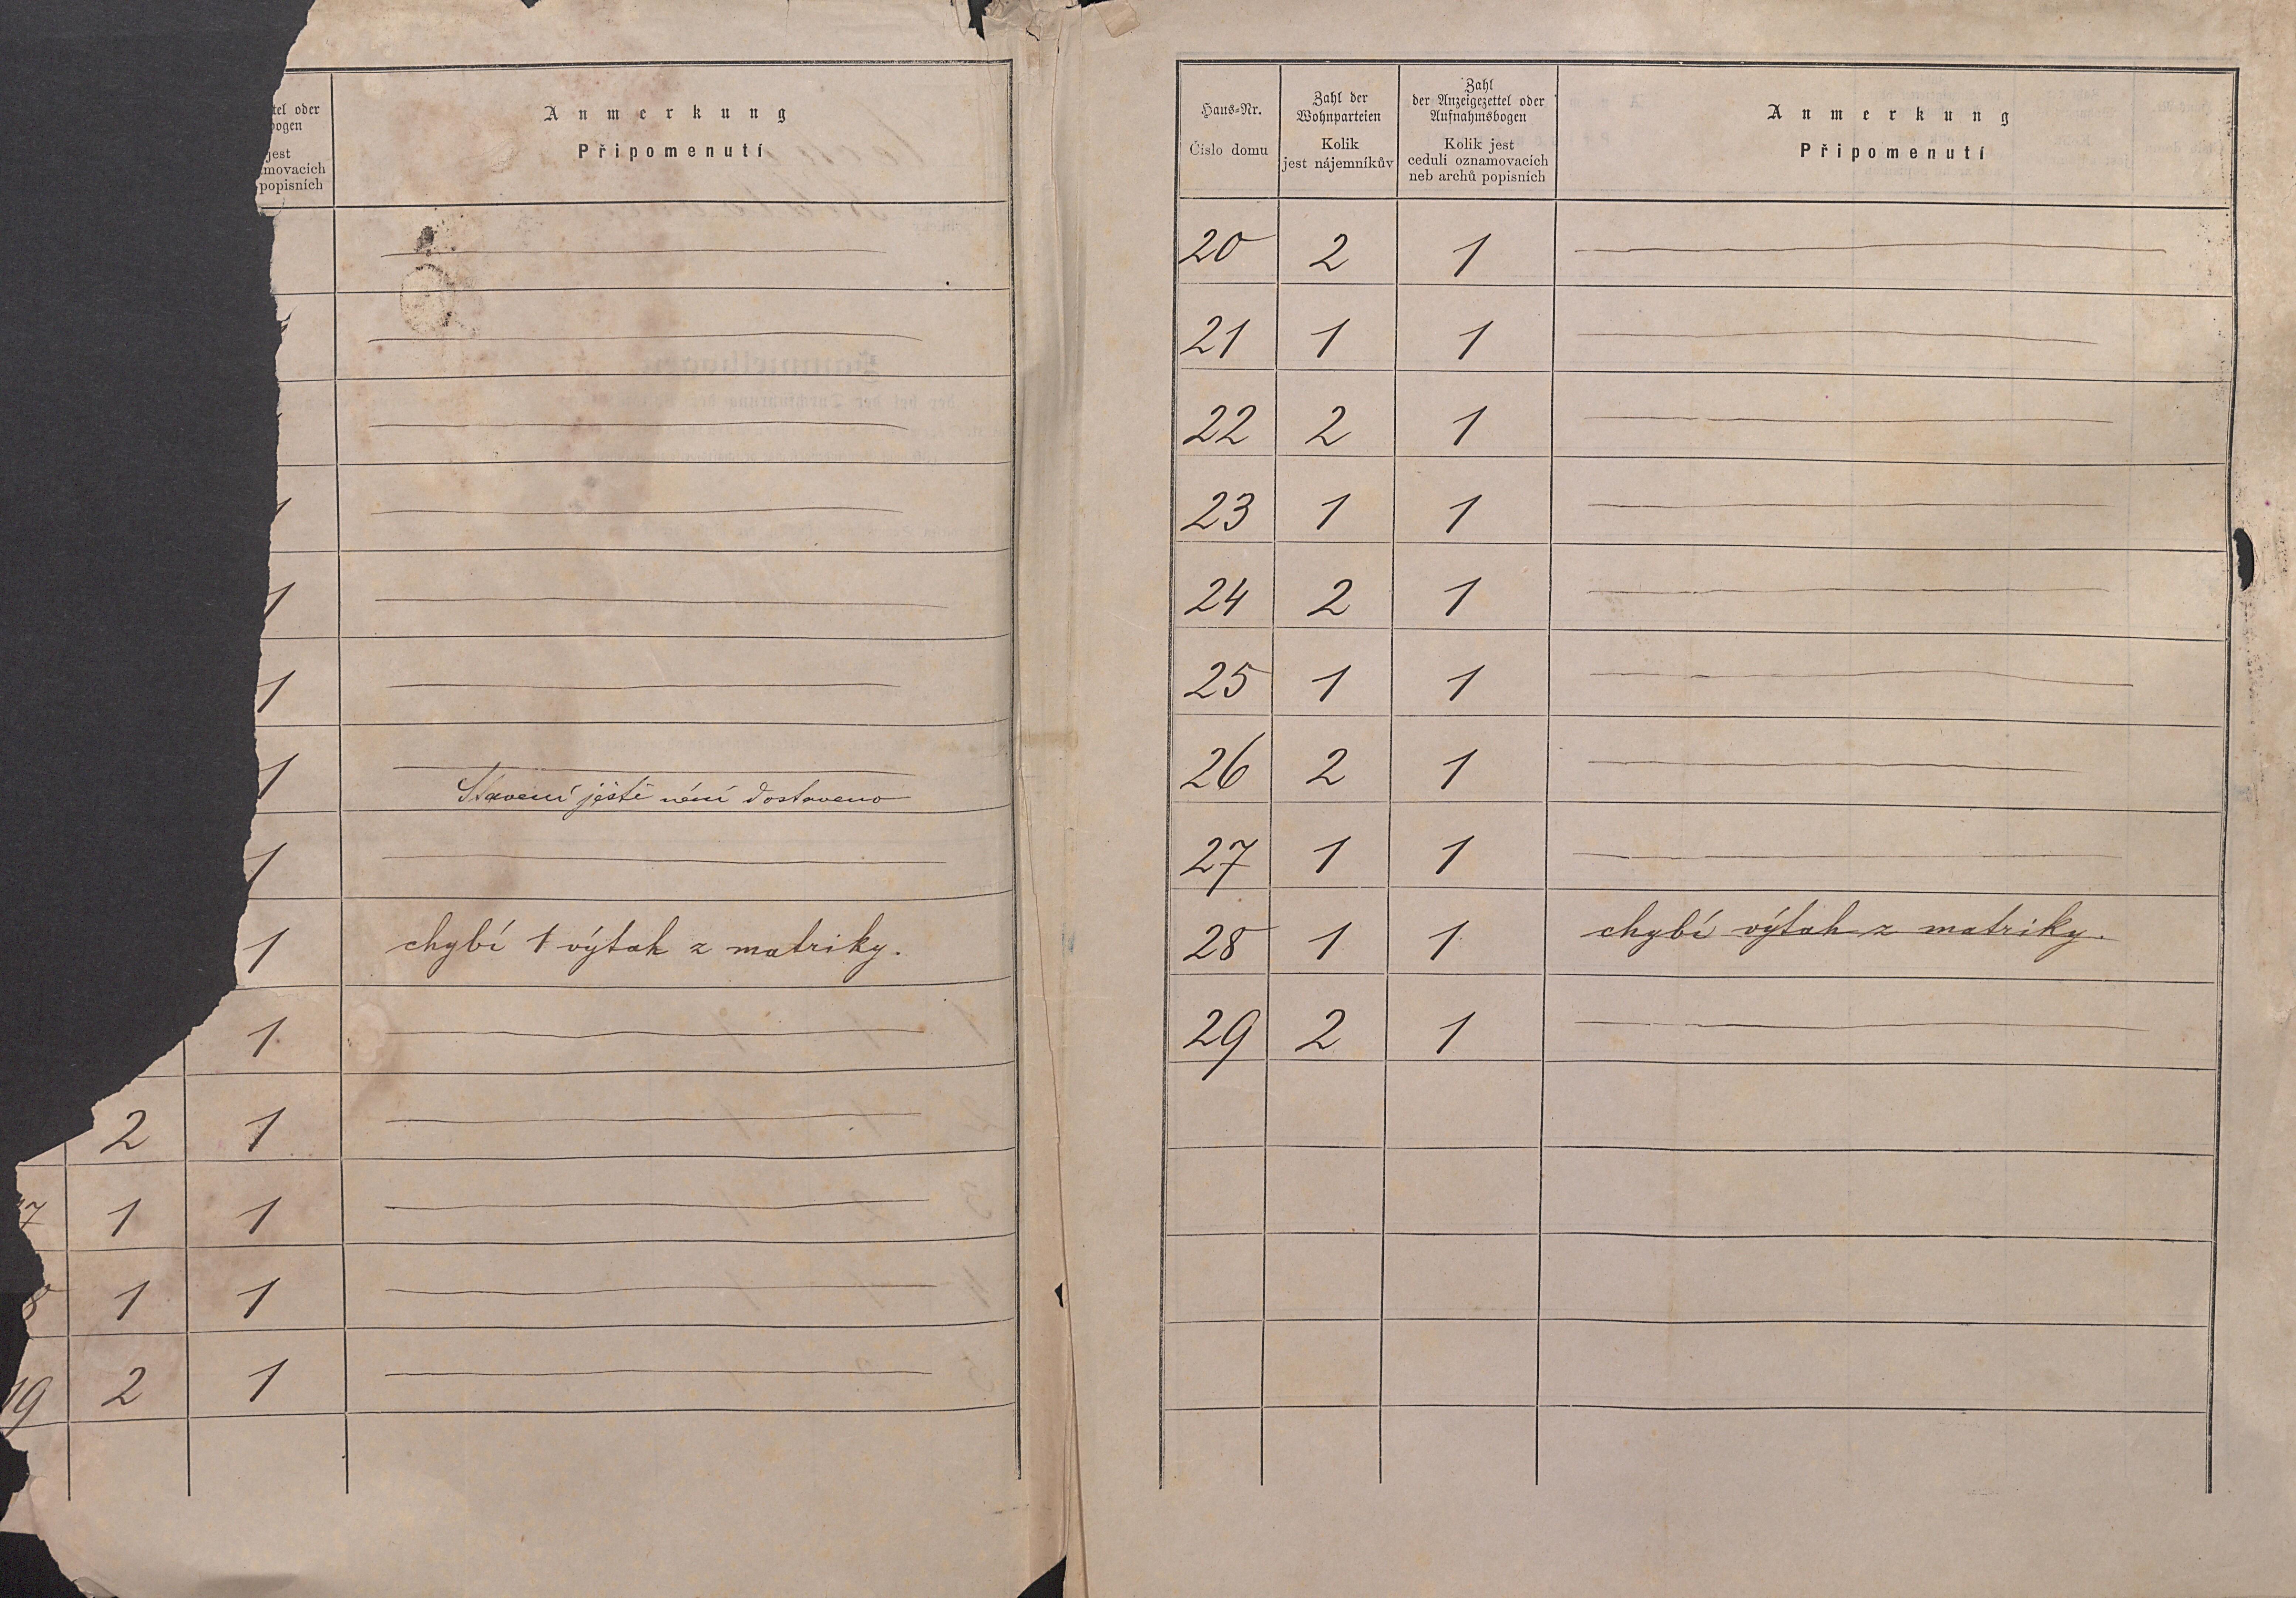 tel oder
bogen
jest
movacích
popisních
Anmerkung
Připomenutí
1
1
1
1
Stavení ještě není dostaveno
1
1 chybí 1 výtah z matriky.
1
2 1
7 1 1
8 1 1
19 2 1
Haus=Nr.
Číslo domu
Zahl der
Wohnparteien
Kolik
jest nájemníkův
Zahl
der Anzeigezettel oder
Aufnahmsbogen
Kolik jest
cedulí oznamovacích
neb archů popisních
Anmerkung
Připomenutí
20 2 1
21 1 1
22 2 1
23 1 1
24 2 1
25 1 1
26 2 1
27 1 1
28 1 1 chybí výtah z matriky.
29 2 1